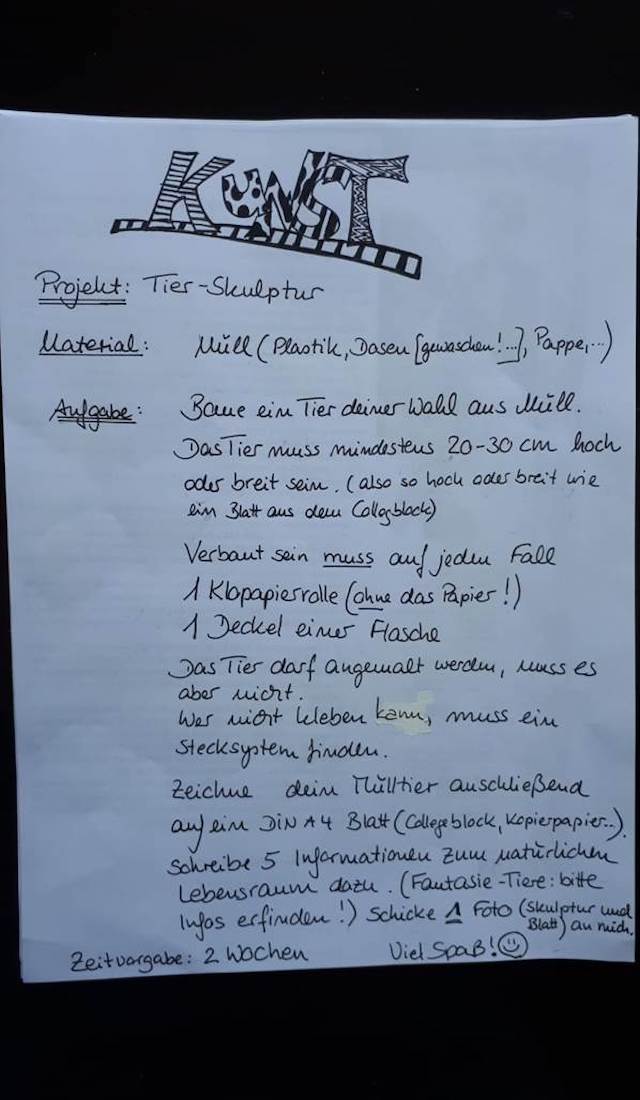 KUNST
Projekt: Tier-Skulptur
Material: Müll (Plastik, Dosen [gewaschen!...], Pappe,...)
Aufgabe: Baue ein Tier deiner Wahl aus Müll.
Das Tier muss mindestens 20-30 cm hoch
oder breit sein. (also so hoch oder breit wie
ein Blatt aus dem Collegblock)
Verbaut sein muss auf jeden Fall
1 Klopapierrolle (ohne das Papier!)
1 Deckel einer Flasche
Das Tier darf angemalt werden, muss es
aber nicht.
Wer nicht kleben kann, muss ein
Stecksystem finden.
Zeichne dein Mülltier anschließend
auf ein DIN A4 Blatt (Collegeblock, Kopierpapier...).
Schreibe 5 Informationen zum natürlichen
Lebensraum dazu. (Fantasie-Tiere: bitte
Infos erfinden!) Schicke 1 Foto (Skulptur und
Blatt) an mich.
Zeitvorgabe: 2 Wochen Viel Spaß!